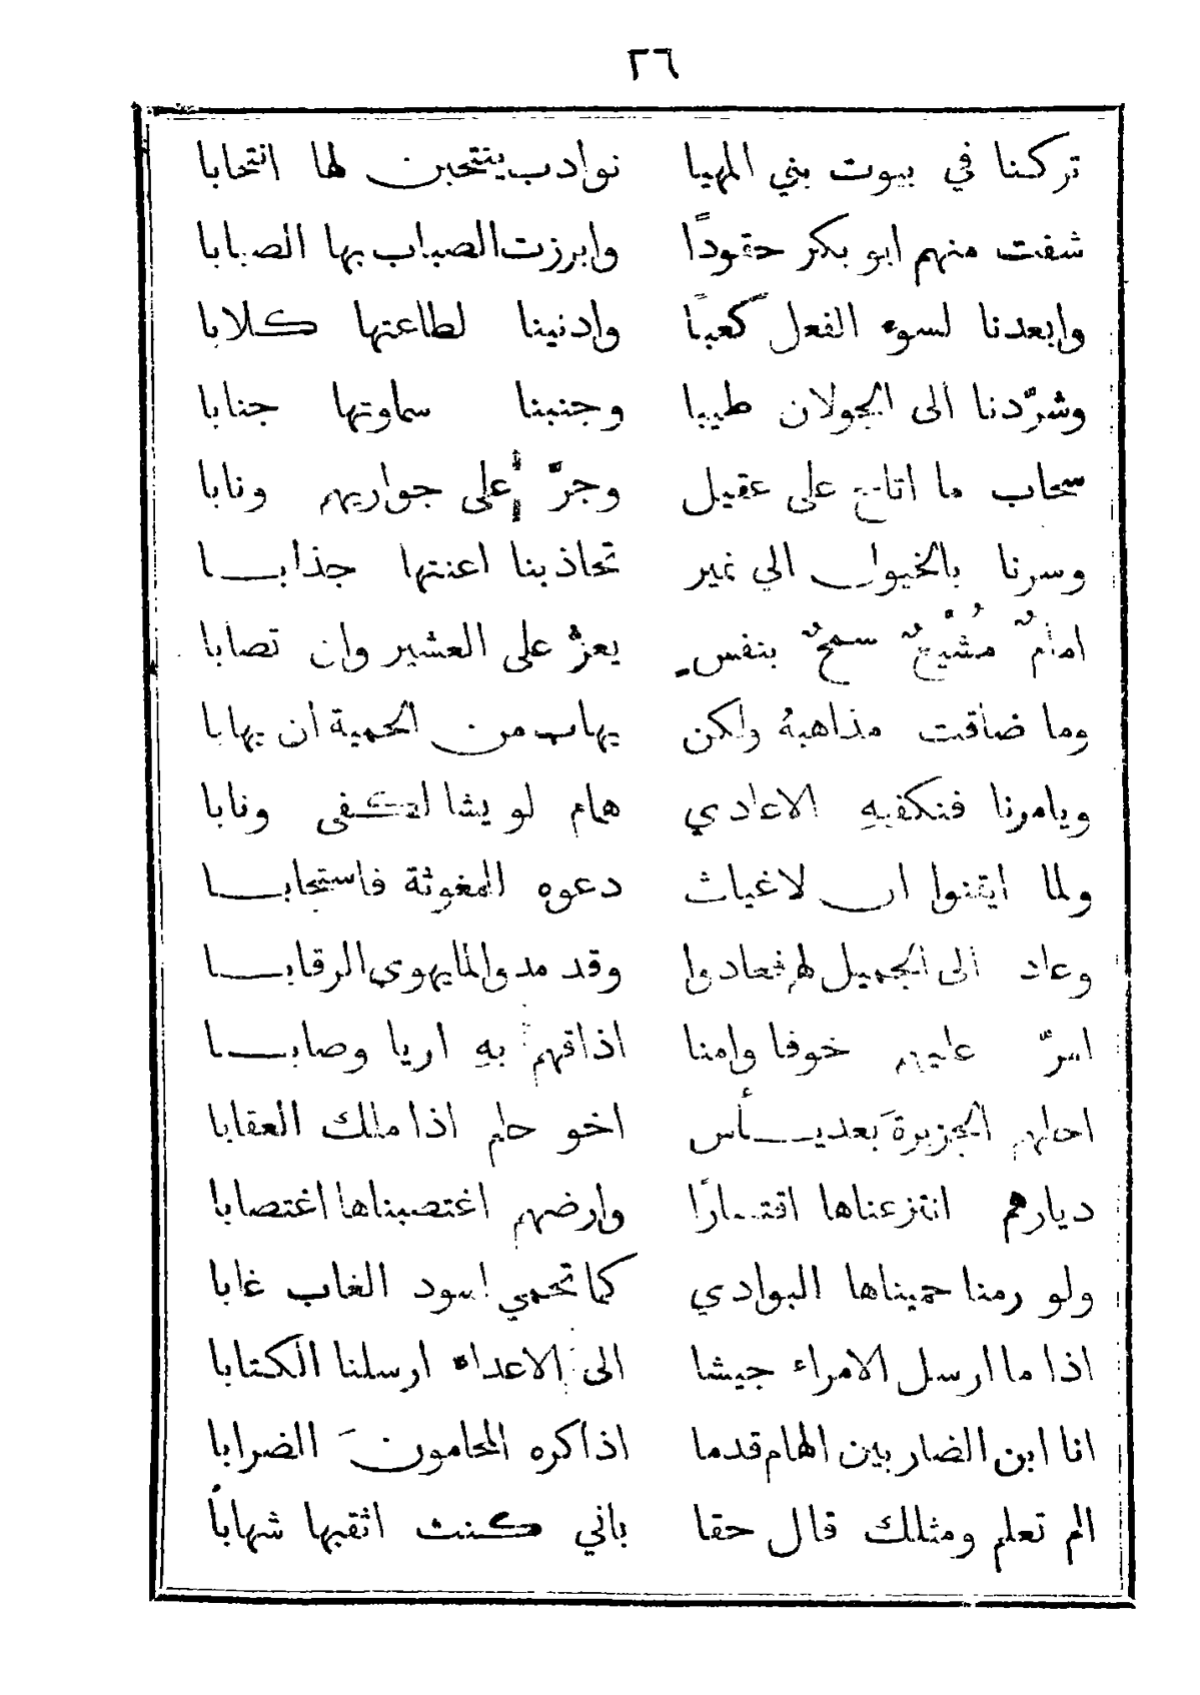 ٢٦
تركنا في بيوت بني المهيا نوادب ينتحبن لها انتحابا
شفت منهم ابو بكر حقودًا وابرزت الضباب بها الضبابا
وابعدنا لسوء الفعل كعبًا وادنينا لطاعتها كلابا
وشرّدنا الى الجولان طيبا وجنبنا سماوتها جنابا
سحاب ما اتاخ على عقيل وجرّ على جواريهم ونابا
وسرنا بالخيول الي نمير تجاذبنا اعنتها جذابا
امامٌ مُشْيحٌ سمحٌ بنفس يعزُّ على العشير وان تصابا
وما ضاقت مذاهبهُ ولكن يهاب من الحمية ان يهابا
ويامرنا فنكفيهِ الاعادي همام لو يشا لكفى ونابا
ولما ايقنوا ان لاغياث دعوه المغوثة فاستجابا
وعاد الى الجميل لهم فعادوا وقد مدوا لما يهوى الرقابا
امرّ عليهم خوفا وامنا اذاقهم بهِ اريا وصابا
احلهم الجزيرةَ بعد يأس اخو حلم اذا ملك العقابا
ديارهم انتزعناها اقتسارًا وارضهم اغتصبناها اغتصابا
ولو رمنا حميناها البوادي كما تحمي اسود الغاب غابا
اذا ما ارسل الامراء جيشا الى الاعداء ارسلنا الكتابا
انا ابن الضاربين الهام قدما اذا كره المحامونَ الضرابا
الم تعلم ومثلك قال حقا باني كنت اثقبها شهاباً